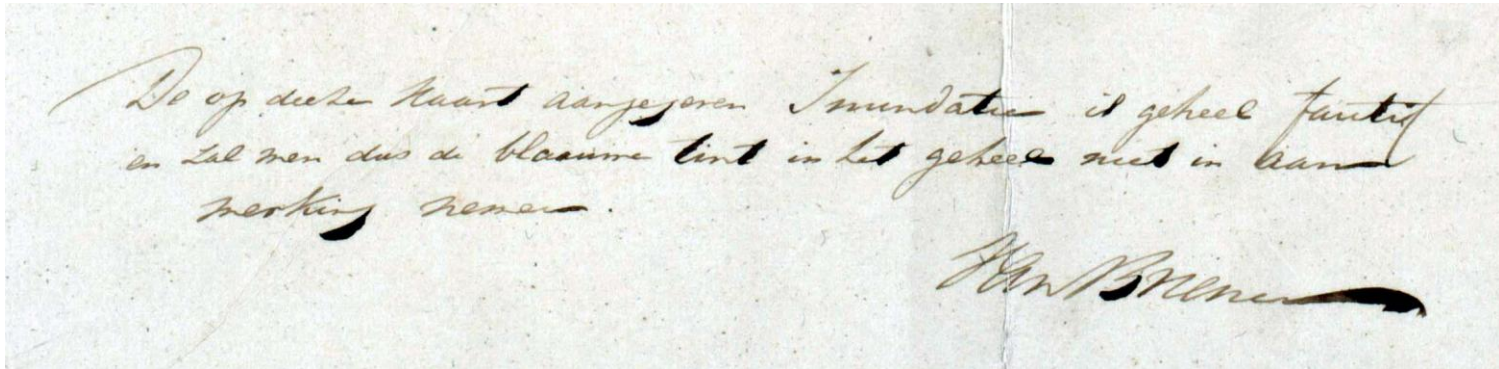 De op deeze Kaart aangegeven Inundatie is geheel foutif
en zal men dus de blaauwe tint in het geheel niet in aan
merking nemen.